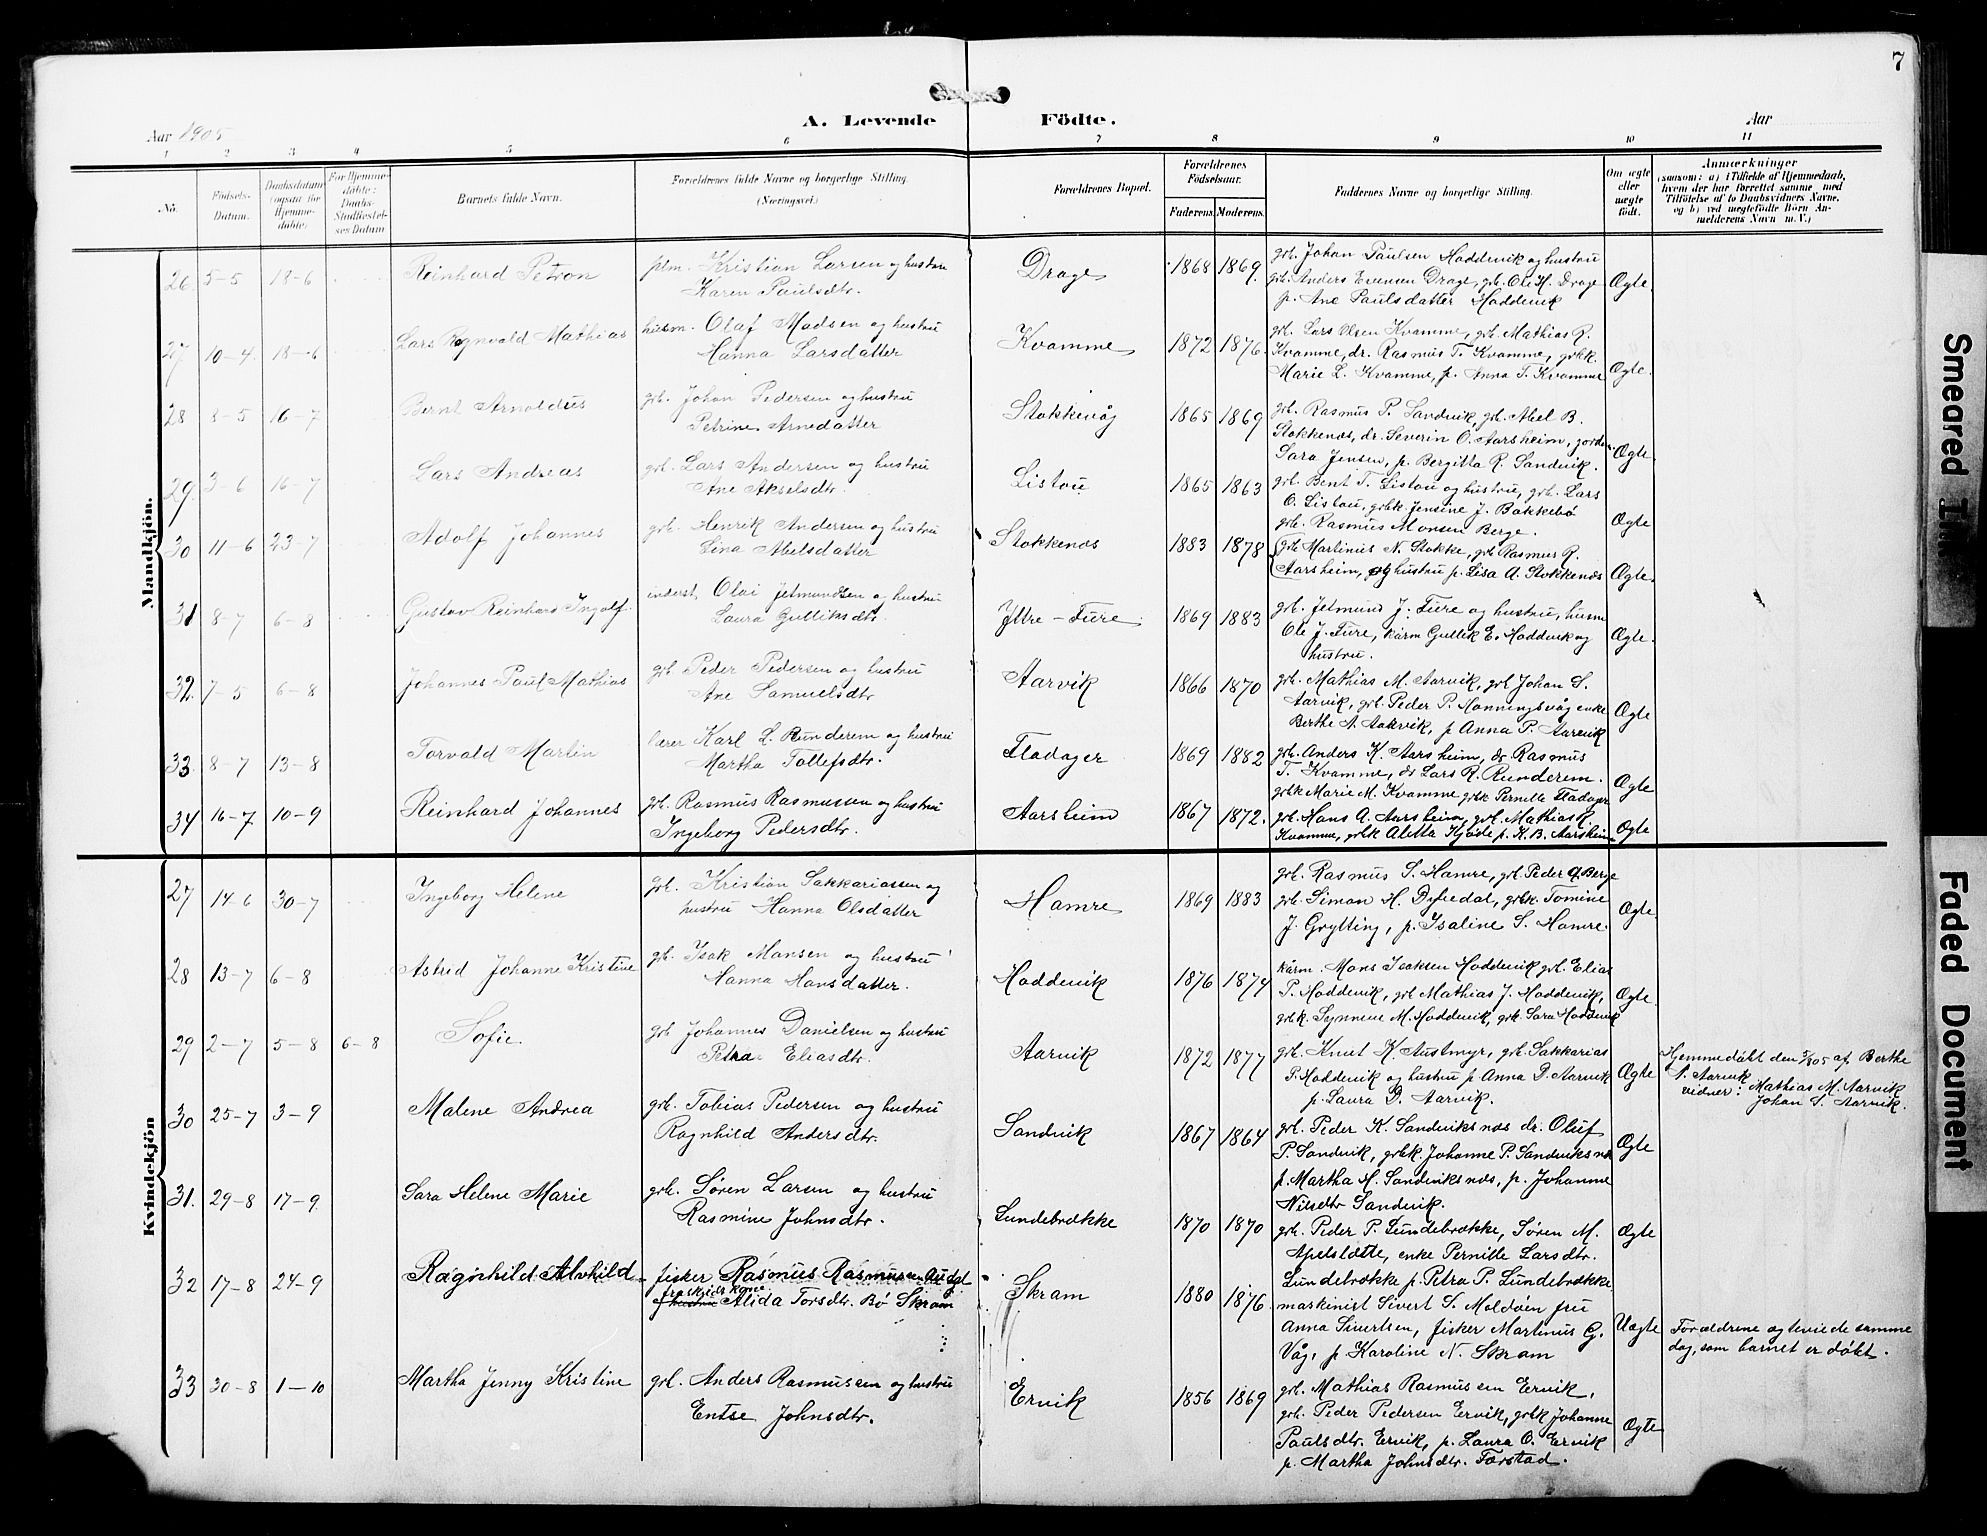 7
A. Levende Födte.
Aar 1905
Aar
1 2 3 4 5 6 7 8 9 10 11
No.
Födsels-
Datum.
Daabsdatum
(ogsaa for
Hjemme-
döbte)
For Hjemme-
döbte:
Daabs-
Stadfæstel-
ses Datum
Barnets fulde Navn.
Forældrenes fulde Navne og borgerlige Stilling.
(Næringsvei.)
Forældrenes Bopæl.
Forældrenes
Födselsaar.
Faderens. Moderens.
Faddernes Navne og borgerlige Stilling.
Om ægte
eller
uægte
födt.
Anmærkninger
(saasom: a) i Tilfælde af Hjemmedaab,
hvem der har forrettet samme, med
Tilföielse af to Daabsvidners Navne,
og b) ved uægtefödte Börn An-
melderens Navn m. V.)
Mandkjön.
26 5-5 18-6 Reinhard Petron
plm. Kristian Larsen og hustru
Karen Paulsdtr.
Drage 1868 1869.
grb. Johan Paulsen Hoddevik og hustru
grb. Anders Evensen Drage, grb. Ole H. Drage
p. Ane Paulsdatter Hoddevik
Ægte.
27 10-4. 18-6 Lars Rognvald Mathias
husm. Olaf Madsen og hustru
Hanna Larsdatter
Kvamme 1872 1876.
grb. Lars Olsen Kvamme, grb. Mathias R.
Kvamme, dr. Rasmus T. Kvamme, grbk.
Marie L. Kvamme, p. Anna T. Kvamme
Ægte.
28 8-5 16-7 Bernt Arnoldus
grb. Johan Pedersen og hustru
Petrine Arnedatter
Stokkevåg 1865 1869
grb. Rasmus P. Sandvik, grb. Abel B.
Stokkenæs, dr. Severin O. Aarsheim, jordm.
Sara Jensen, p. Bergitta R. Sandvik.
Ægte.
29. 3-6 16-7 Lars Andreas
grb. Lars Andersen og hustru
Ane Akselsdtr.
Listou 1865 1863
grb. Bent T. Listou og hustru, grb. Lars
O. Listou, grbk Jensine J. Bakkebø
grb. Rasmus Monsen Berge.
Ægte
30 11-6 23-7 Adolf Johannes
grb. Henrik Andersen og hustru
Lina Abelsdatter
Stokkenæs 1883 1878
grb Martinus N. Stokke, grb Rasmus R.
Aarsheim, og hustru p. Lisa A. Stokkenæs
Ægte.
31 8-7 6-8 Gustav Reinhard Ingolf.
inderst. Olai Jetmundsen og hustru
Laura Gulliksdtr.
Yttre-Fure 1869 1883
grb. Jetmund J. Fure og hustru, husm
Ole J. Fure, kårm Gullik E. Hoddevik og
hustru.
Ægte.
32. 7-5 6-8 Johannes Paul Mathias
grb. Peder Pedersen og hustru
Ane Samuelsdtr
Aarvik 1866 1870
grb. Mathias M. Aarvik, grb Johan S.
Aarvik, grb. Peder P. Honningsvåg enke
Berthe N. Aarvik, p Anna P. Aarvik
Ægte
33. 8-7 13-8 Torvald Martin
lærer Karl L. Runderem og hustru
Martha Tollefsdtr.
Fladager 1869 1882
grb. Anders K. Aarsheim, dr Rasmus
T. Kvamme, dr Lars R. Runderem.
grbk Marie M. Kvamme grbk Pernille Fladager
Ægte
34 16-7 10-9 Reinhard Johannes
grb. Rasmus Rasmussen og hustru
Ingeborg Pedersdtr.
Aarsheim 1867 1872.
grb. Hans A. Aarsheim, grb. Mathias R
Kvamme, grbk Aletta Kjøde p. K. B. Aarsheim
Ægte
Kvindekjön
27 14-6 30-7 Ingeborg Helene
grb. Kristian Sakkariassen og
hustru Hanna Olsdatter
Hamre 1869 1883
grb. Rasmus S. Hamre, grb. Peder A. Berge
grb. Simon H. Dyredal, grbk. Tomine
J. Grytting, p. Isaline S. Hamre.
Ægte.
28 13-7 6-8 Astrid Johanne Kristine
grb. Isak Monsen og hustru
Hanna Hansdatter.
Hoddevik 1876 1874
kårm. Mons Isaksen Hoddevik grb. Elias
P. Hoddevik, grb Mathias J. Hoddevik,
grbk. Synneve M. Hoddevik, grk. Sara Hoddevik
Ægte.
29 2-7 5-8 6-8 Sofie
grb Johannes Danielsen og hustru
Petra Eliasdtr.
Aarvik 1872 1877
grb. Knut K. Austmyr, grb. Sakkarias
P. Hoddevik og hustru p Anna D. Aarvik
p. Laura D. Aarvik.
Ægte
Hjemmedøbt den 5/805 af Berthe
N. Aarvik
vidner: Mathias M. Aarvik
Johan S. Aarvik.
30 25-7 3-9 Malene Andrea
grb. Tobias Pedersen og hustru
Ragnhild Andersdtr.
Sandvik 1867 1864
grb. Peder K. Sandviksnæs dr. Oluf
P. Sandvik, grbk. Johanne P. Sandviksnæs
p. Martha M. Sandviksnæs, p. Johanne
Nilsdtr Sandvik.
Ægte
31. 29-8 17-9. Sara Helene Marie
grb. Søren Larsen og hustru
Rasmine Johnsdtr.
Lundebrække 1870 1870
grb. Peder P. Lundebrække, Søren M.
Apelsløtte, enke Pernille Larsdtr.
Lundebrække p. Petra P. Lundebrække.
Ægte
32 17-8 24-9 Ragnhild Alvhild
fisker Rasmus Rasmussen Audal
fraskildt kone
og hustru Alida Torsdtr. Bø Skram
Skram 1880 1876.
maskinist Sivert S. Moldøen fru
Anna Sivertsen, fisker Martinus G.
Våg, p Karoline N. Skram
Uægte
Forældrene ægteviede samme
dag, som barnet er døbt.
33 30-8 1-10 Martha Jenny Kristine
grb. Anders Rasmussen og hustru
Entse Johnsdtr.
Ervik 1856 1869
grb. Mathias Rasmussen Ervik,
grb. Peder Pedersen Ervik, grbk Johanne
Paulsdtr. Ervik, p. Laura O. Ervik
p. Martha Johnsdtr. Forstad.
Ægte
Smeared
Faded Document